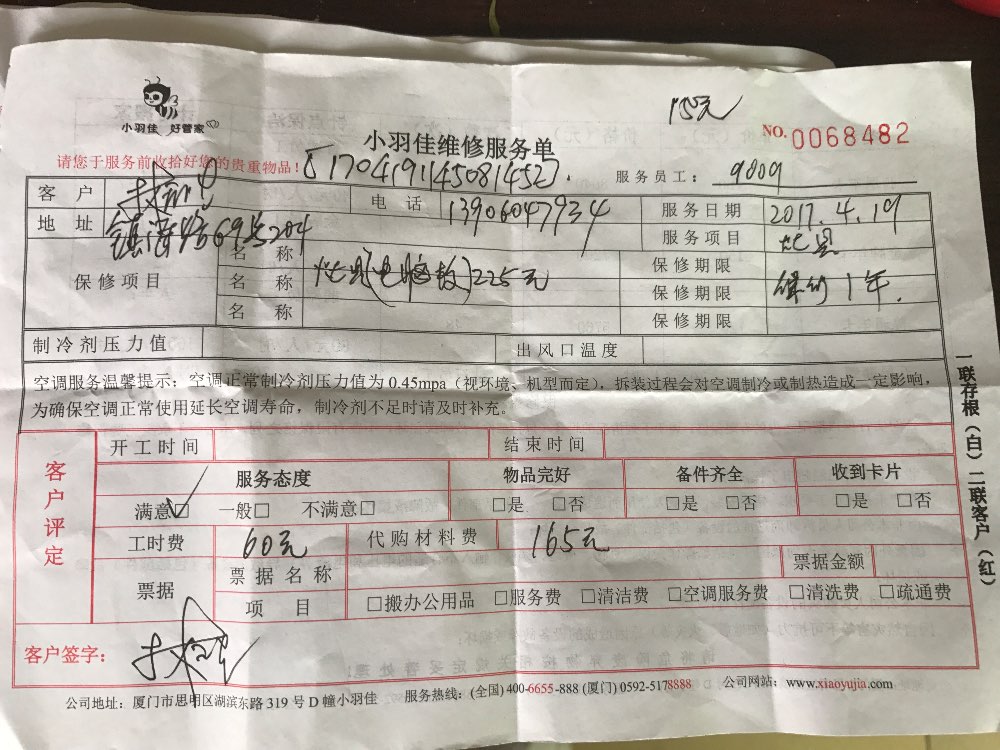 小羽佳 好管家
155元
NO. 0068482
小羽佳维修服务单
请您于服务前收拾好您的贵重物品!
服务员工: 9009
客户
电话 13906047934
服务日期 2017.4.19
地址 镇海路69号204
服务项目
保修项目
名称
保修期限
名称 225元
保修期限 1年.
名称
保修期限
制冷剂压力值
出风口温度
空调服务温馨提示:空调正常制冷剂压力值为 0.45mpa(视环境、机型而定),拆装过程会对空调制冷或制热造成一定影响,
为确保空调正常使用延长空调寿命,制冷剂不足时请及时补充。
客户评定
开工时间
结束时间
服务态度 物品完好 备件齐全 收到卡片
满意☑ 一般□ 不满意□ □是 □否 □是 □否 □是 □否
工时费 60元 代购材料费 165元
票据
票据名称
票据金额
项目 □搬办公用品 □服务费 □清洁费 □空调服务费 □清洗费 □疏通费
客户签字:
一联存根(白)二联客户(红)
公司地址:厦门市思明区湖滨东路 319 号 D 幢小羽佳 服务热线:(全国) 400-6655-888 (厦门) 0592-5178888 公司网站:www.xiaoyujia.com